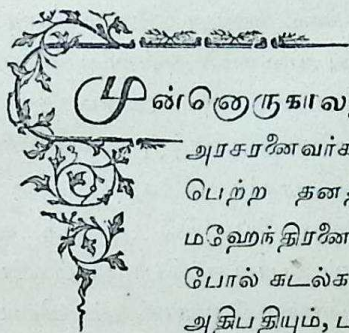 முன்னொருகால
அரசரனைவர்க
பெற்ற தனத
மஹேந்திரனை
போல் கடல்க
அதிபதியும், ப